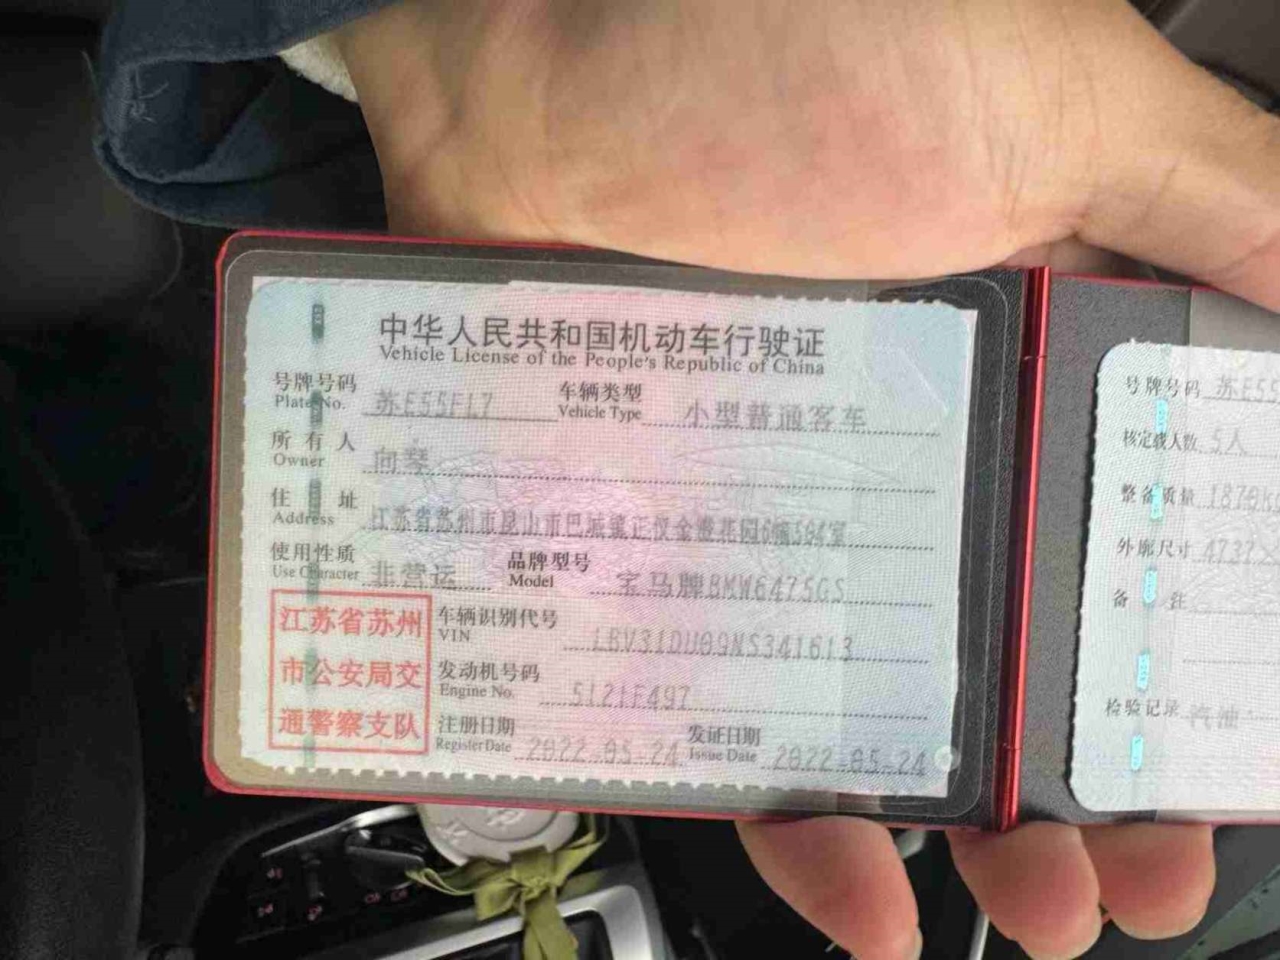 中华人民共和国机动车行驶证
Vehicle License of the People's Republic of China
号牌号码 苏E55FL7 车辆类型 小型普通客车
Plate No. Vehicle Type
所有人 向琴
Owner
住址 江苏省苏州市昆山市巴城镇正仪金澄花园6幢504室
Address
使用性质 非营运 品牌型号 宝马牌BMW6475GS
Use Character Model
江苏省苏州
市公安局交
通警察支队
车辆识别代号 LBV31DU09NS341613
VIN
发动机号码 5121F497
Engine No.
注册日期 2022-05-24 发证日期 2022-05-24
Register Date Issue Date
号牌号码 苏E55
核定载人数 5人
整备质量 1870k
外廓尺寸 4737×
备注
检验记录 汽油